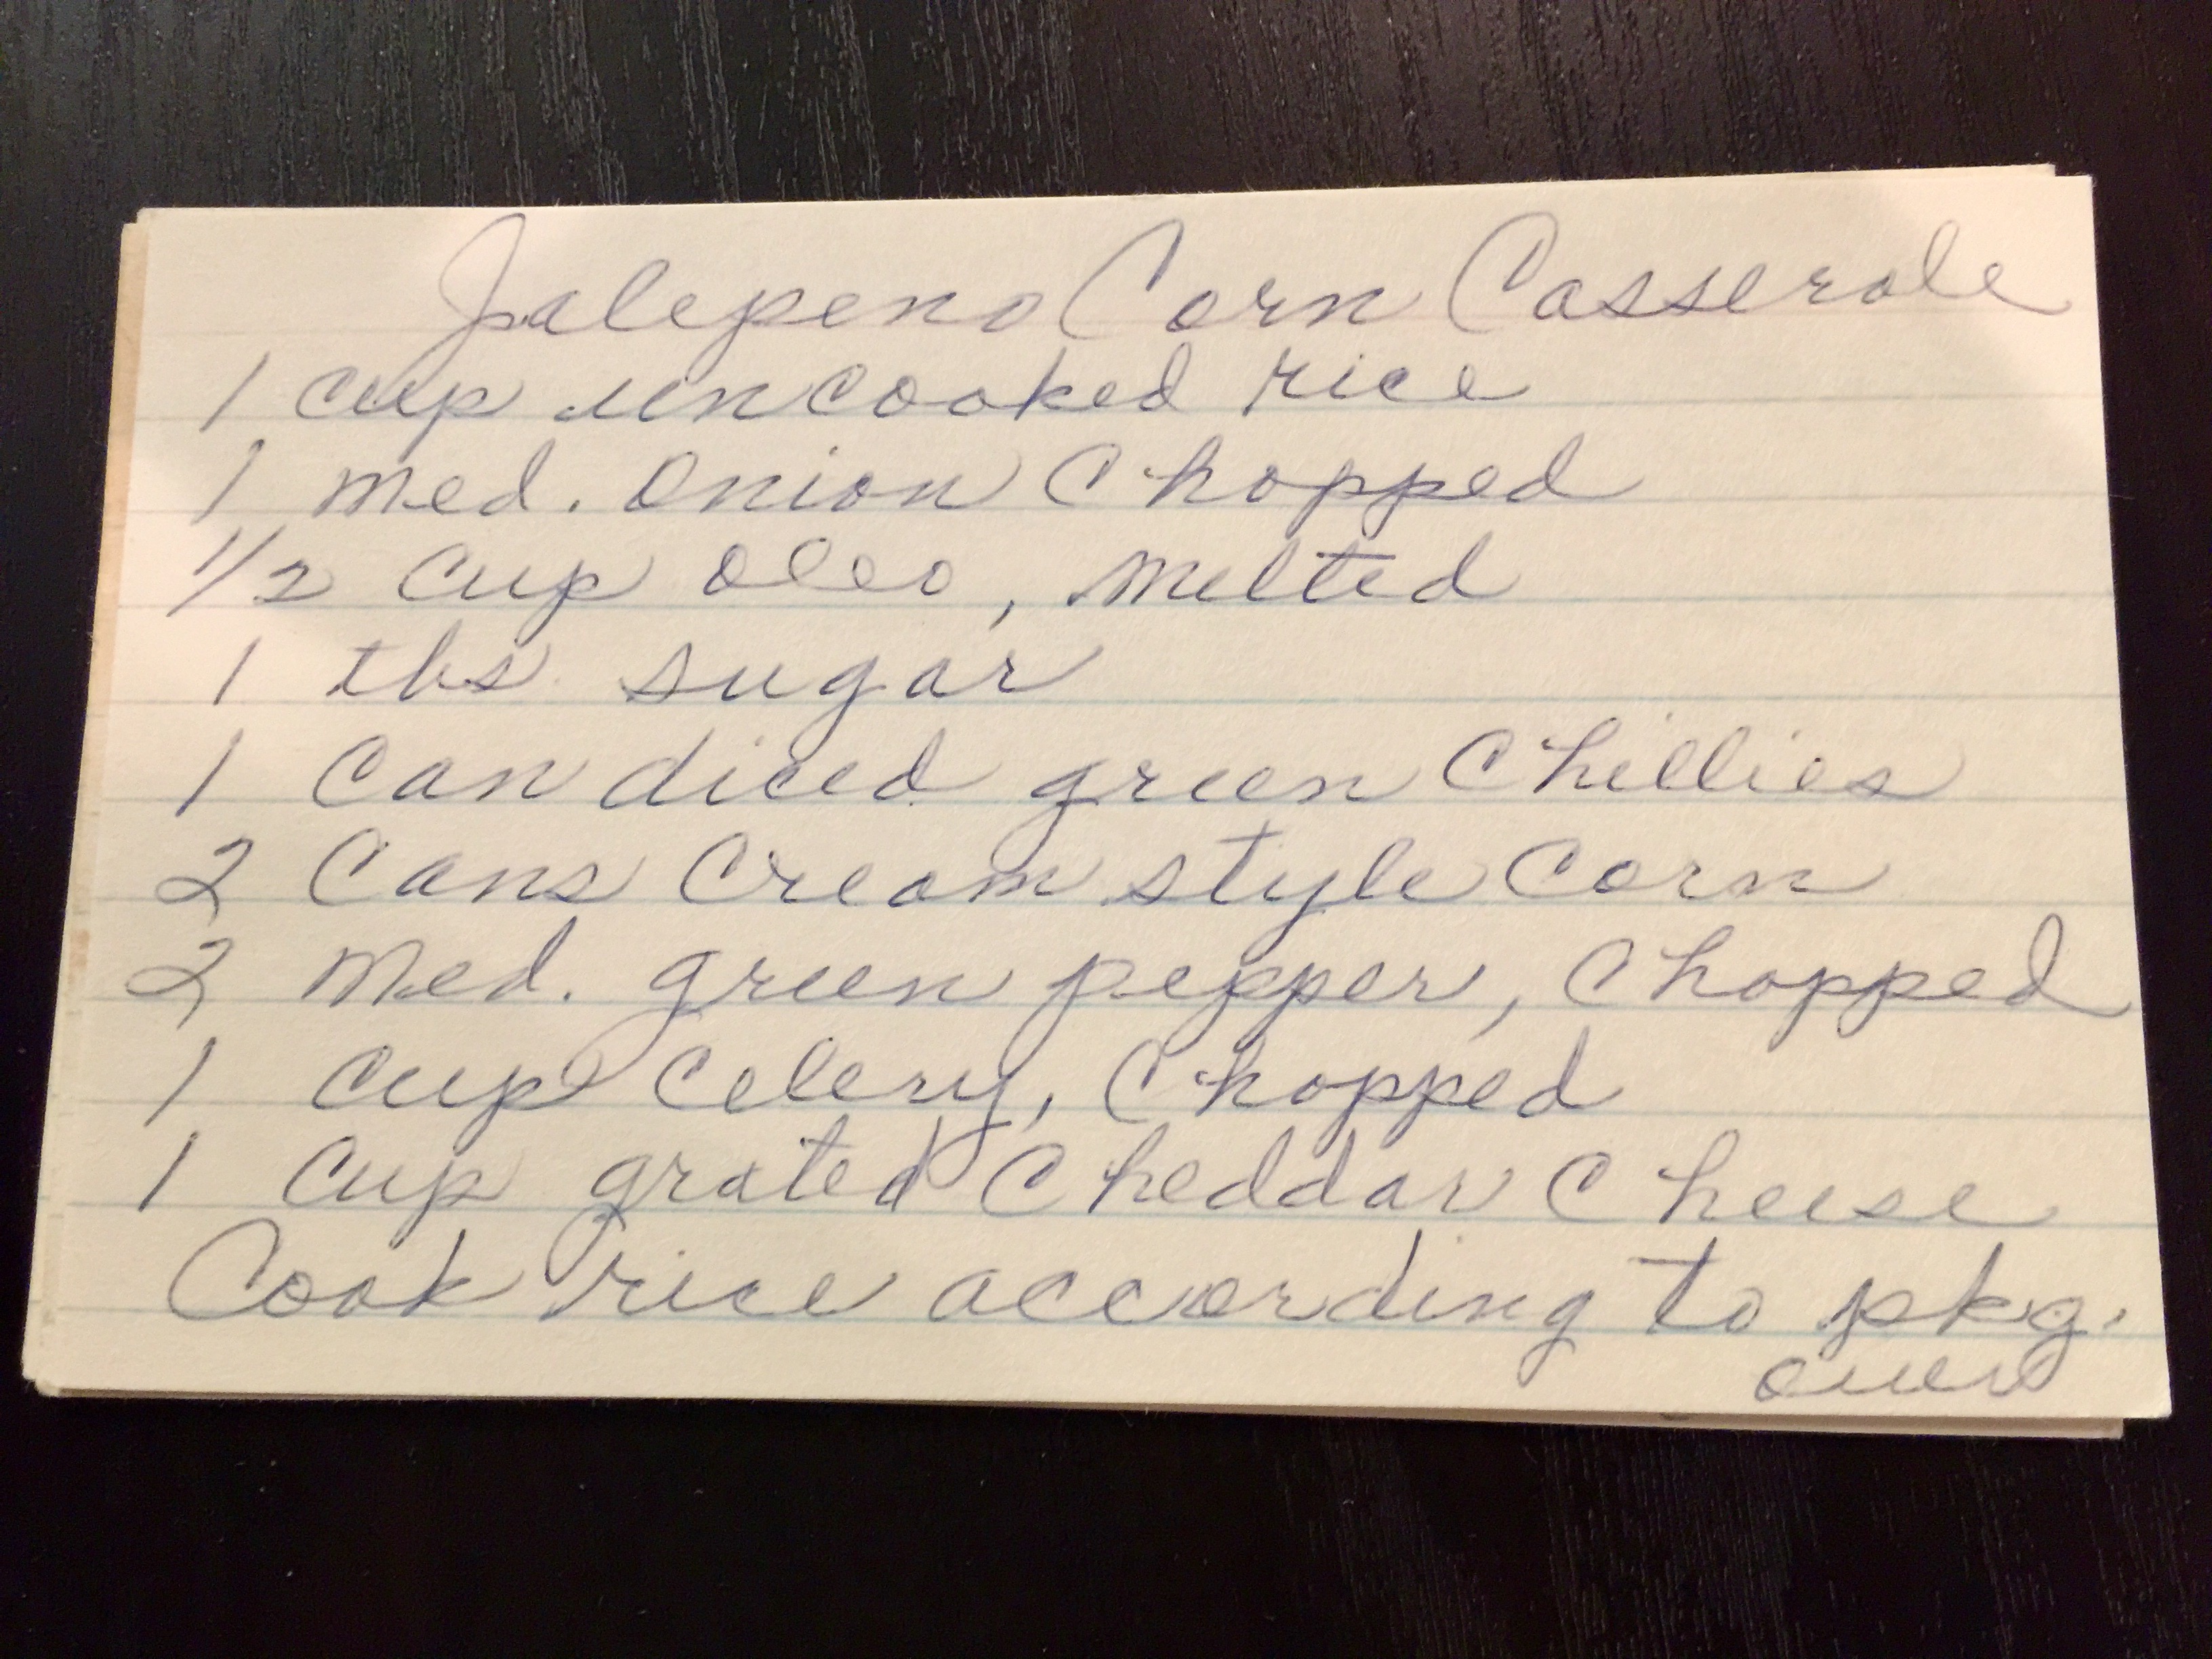 Jalepeno Corn Casserole
1 cup uncooked rice
1 med. onion chopped
1/2 cup oleo, melted
1 tbs sugar
1 can diced green chillies
2 cans cream style corn
2 med. green pepper, chopped
1 cup celery, chopped
1 cup grated cheddar cheese
Cook rice according to pkg.
over